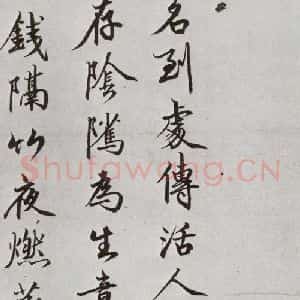 名到處傳活人
存陰隲為生意
錢隔竹夜燃藥
Shufawang.CN